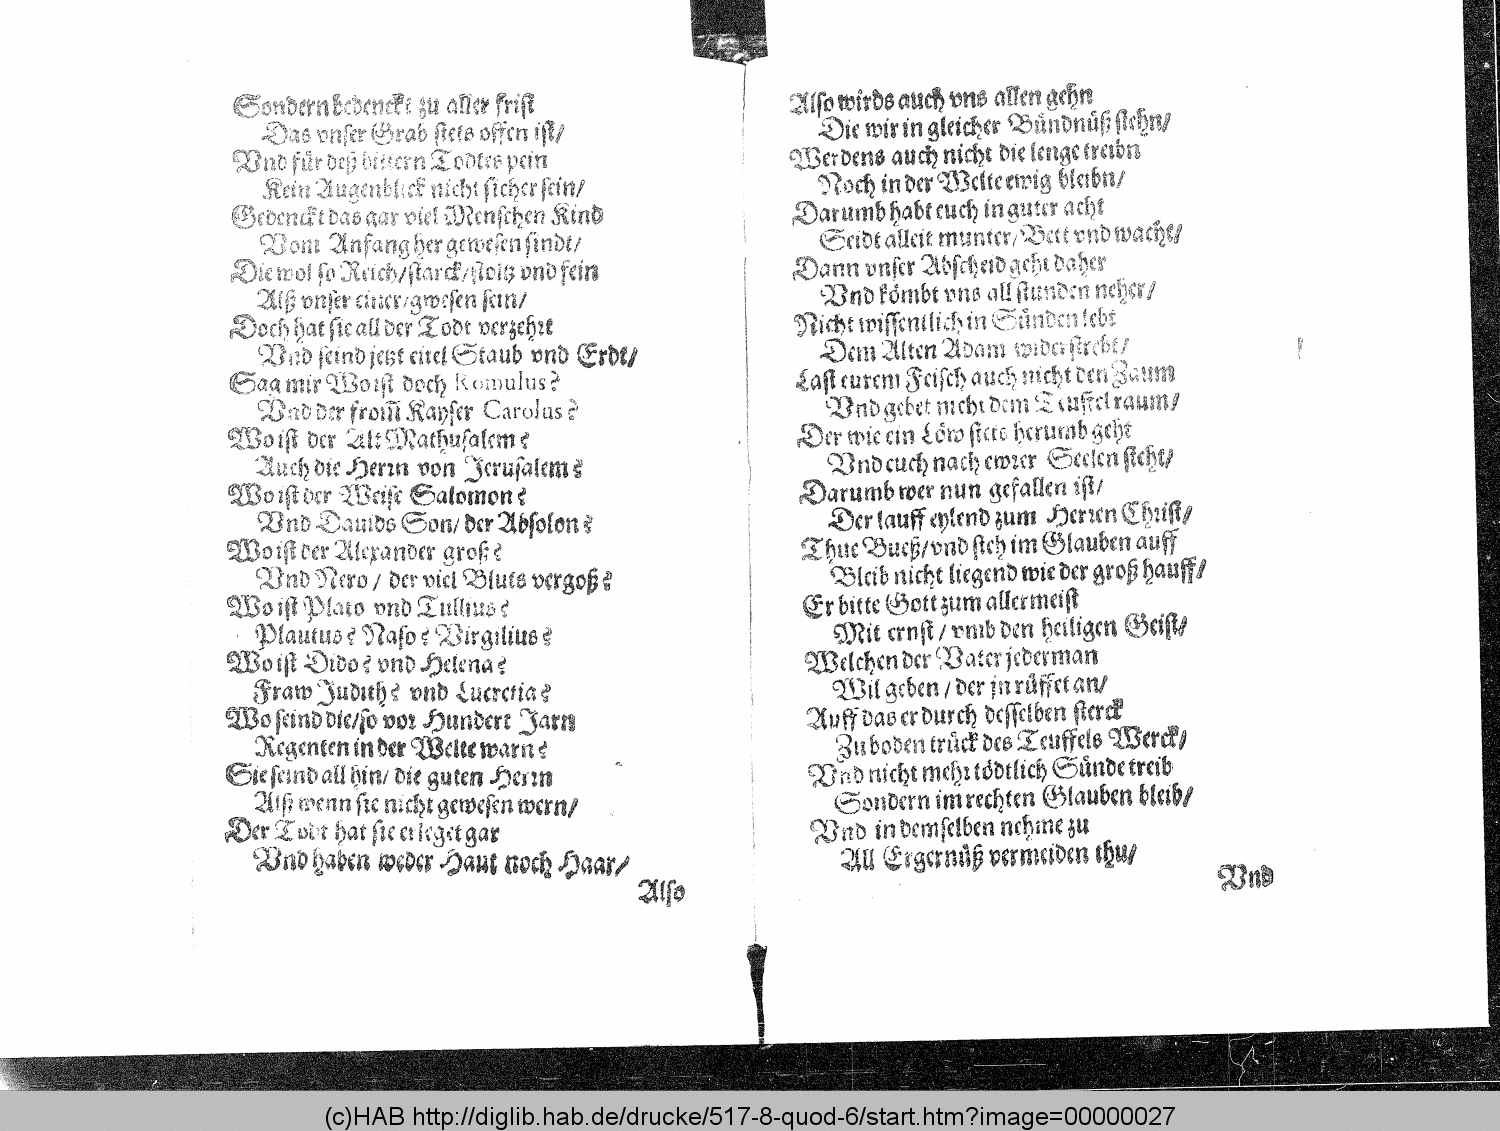 Sondern bedenckt zu aller frist
Das vnser Grab stets offen ist/
Vnd für deß bittern Todtes pein
Kein Augenblick nicht sicher sein/
Gedenckt das gar viel Menschen Kind
Vom Anfang her gewesen sindt/
Die wol so Reich/starck/stoltz vnd fein
Alß vnser einer/gwesen sein/
Doch hat sie all der Todt verzehrt
Vnd seind jetzt eitel Staub vnd Erdt/
Sag mir Wo ist doch Romulus?
Vnd der from̃ Kayser Carolus?
Wo ist der Alt Mathusalem?
Auch die Herrn von Jerusalem?
Wo ist der Weise Salomon?
Vnd Dauids Son/ der Absolon?
Wo ist der Alexander groß?
Vnd Nero / der viel Bluts vergoß?
Wo ist Plato vnd Tullius?
Plautus? Naso? Virgilius?
Wo ist Dido? vnd Helena?
Fraw Judith? vnd Lucretia?
Wo seind die/so vor Hundert Jarn
Regenten in der Welte warn?
Sie seind all hin/ die guten Herrn
Alß wenn sie nicht gewesen wern/
Der Todt hat sie erleget gar
Vnd haben weder Haut noch Haar/
Also
Also wirds auch vns allen gehn
Die wir in gleicher Bündnüß stehn/
Werdens auch nicht die lenge treibn
Noch in der Welte ewig bleibn/
Darumb habt euch in guter acht
Seidt alleit munter/Bett vnd wacht/
Dann vnser Abscheid geht daher
Vnd kömbt vns all stunden neher/
Nicht wissentlich in Sünden lebt
Dem Alten Adam widerstrebt/
Last eurem Feisch auch nicht den Zaum
Vnd gebet nicht dem Teuffel raum/
Der wie ein Löw stets herumb geht
Vnd euch nach ewrer Seelen steht/
Darumb wer nun gefallen ist/
Der lauff eylend zum Herren Christ/
Thue Bueß/vnd steh im Glauben auff
Bleib nicht liegend wie der groß hauff/
Er bitte Gott zum allermeist
Mit ernst / vmb den heiligen Geist/
Welchen der Vater jederman
Wil geben / der jn rüffet an/
Auff das er durch desselben sterck
Zu boden trück des Teuffels Werck/
Vnd nicht mehr tödtlich Sünde treib
Sondern im rechten Glauben bleib/
Vnd in demselben nehme zu
All Ergernüß vermeiden thu/
Vnd
(c)HAB http://diglib.hab.de/drucke/517-8-quod-6/start.htm?image=00000027